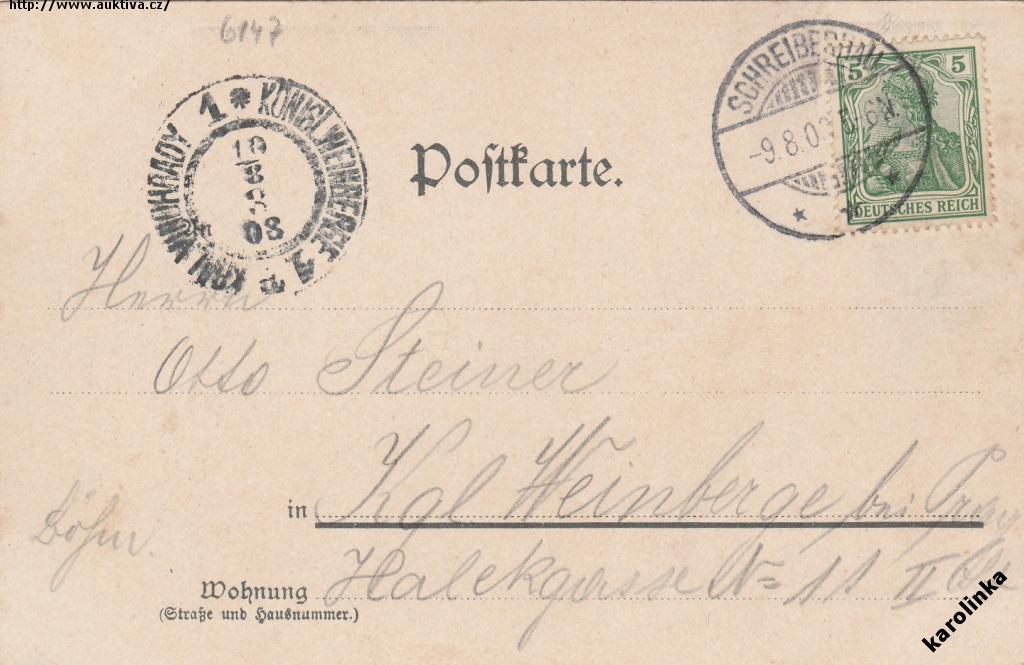 http://www.auktiva.cz/
6147
SCHREIBERHAU
5 5
-9.8.03
DEUTSCHES REICH
1 * KÖNIGL. WEINBERGE
KRÁL. VINOHRADY
10
8
03
Postkarte.
Herrn
Otto Steiner
in Kgl Weinberge bei Prag
Böhm.
Wohnung Halekgasse No 11 II
(Straße und Hausnummer.)
karolinka